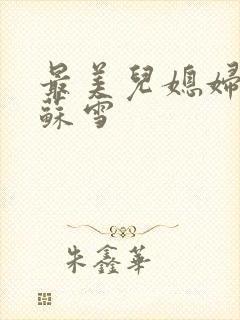 最美兒媳婦
蘇雪
朱鑫華